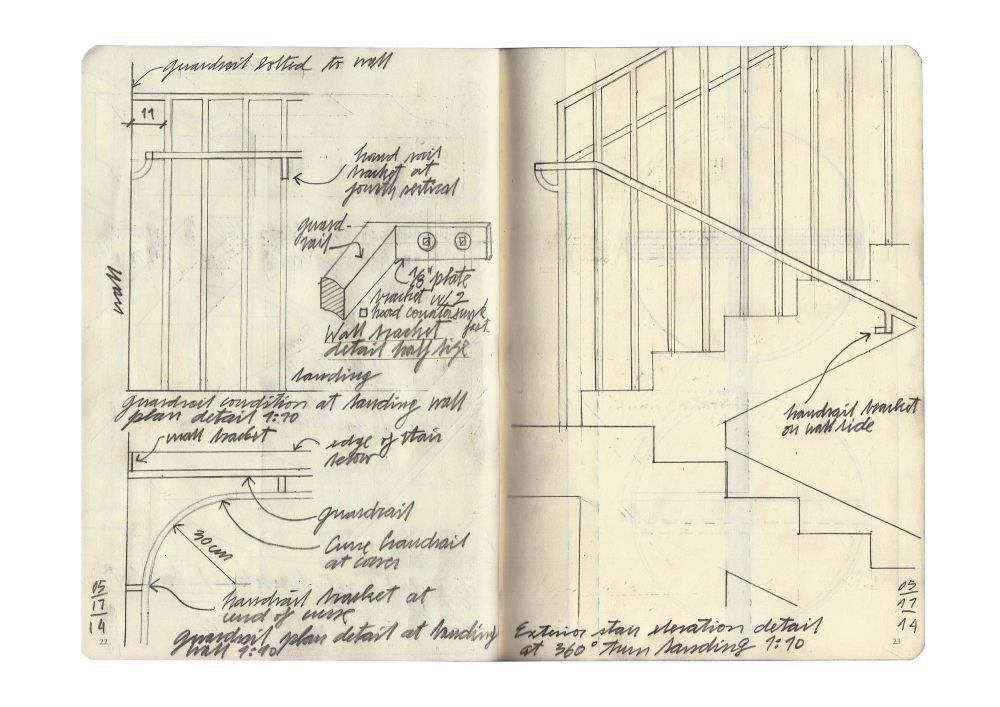 guardrail bolted to wall
11
hand rail
bracket at
fourth vertical
guard-
rail
wall
1/8" plate
bracket w/ 2
hard countersunk
Wall bracket
detail half size
landing
guardrail condition at landing wall
plan detail 1:10
wall bracket
edge of stair
below
guardrail
Curve handrail
at corner
30cm
handrail bracket at
end of curve
05
17
14
guardrail plan detail at landing
wall 1:10
22
handrail bracket
on wall side
Exterior stair elevation detail
at 360° turn landing 1:10
05
17
14
23